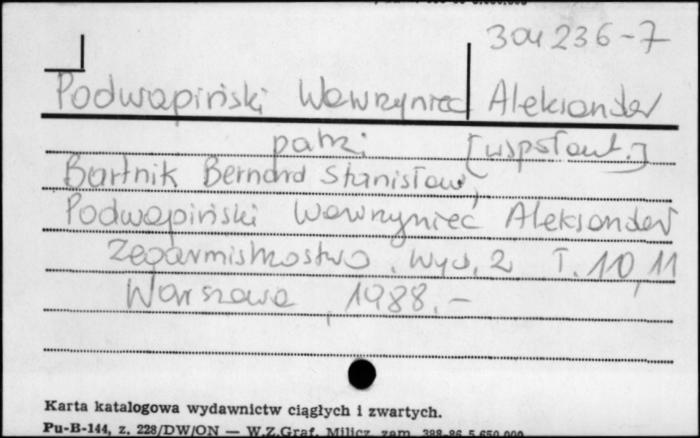 304236-7
Podwapiński Wawrzyniec Aleksander
patrz [współaut.]
Bartnik Bernard Stanisław,
Podwapiński Wawrzyniec Aleksander
Zegarmistrzostwo. Wyd. 2 T. 10, 11
Warszawa, 1988.-
Karta katalogowa wydawnictw ciągłych i zwartych.
Pu-B-144, z. 228/DW/ON — W.Z.Graf. Milicz zam. 388-86 5.650.000